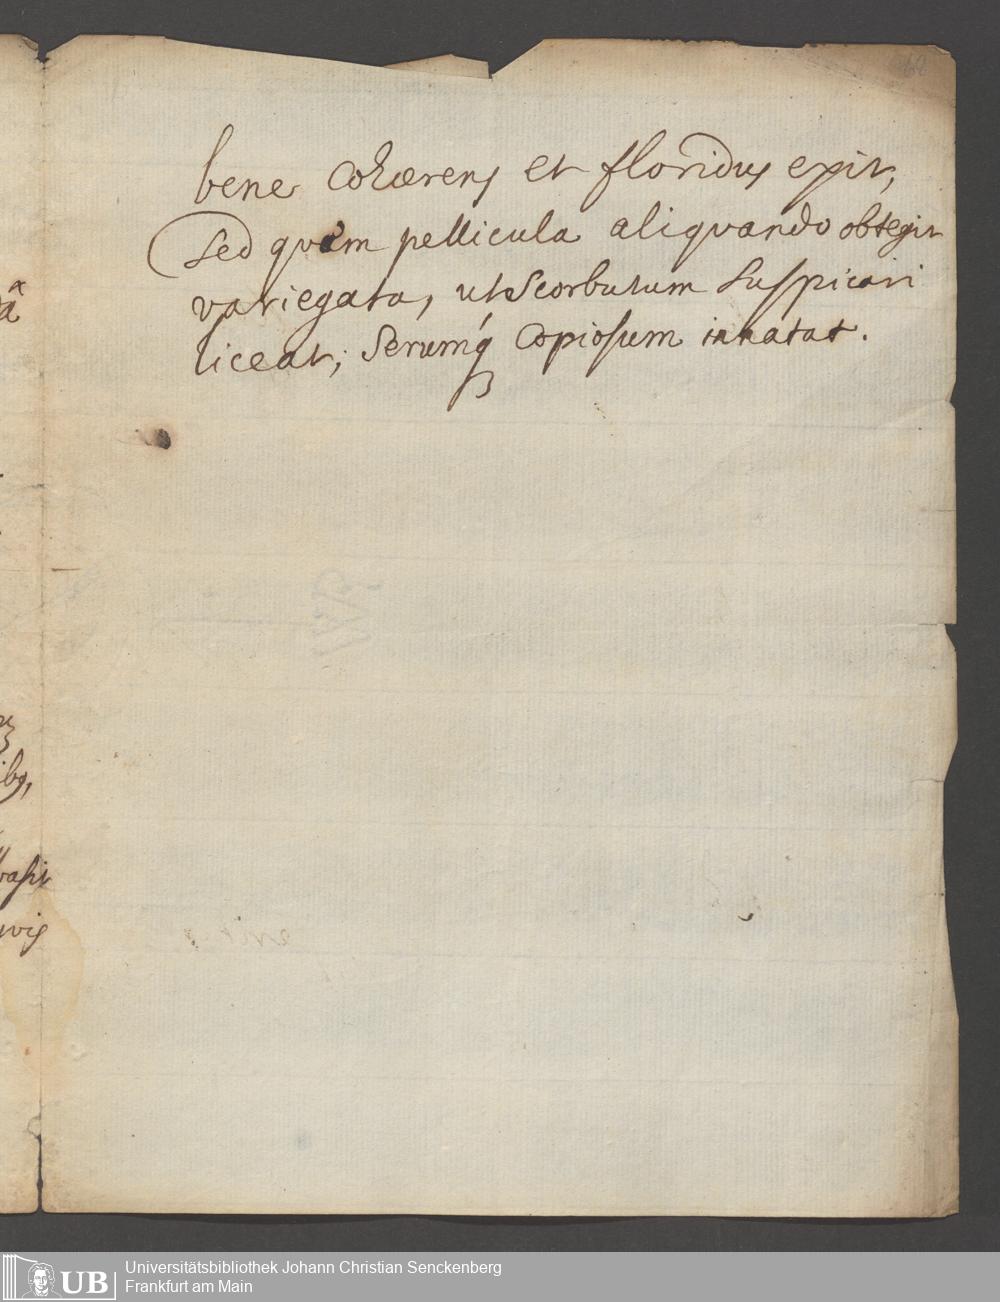 68
bene cohærens et floridus exit,
sed quem pellicula aliquando obtegit
variegata, ut scorbutum suspicari
liceat; serumq́; copiosum innatat.
UB
Universitätsbibliothek Johann Christian Senckenberg
Frankfurt am Main